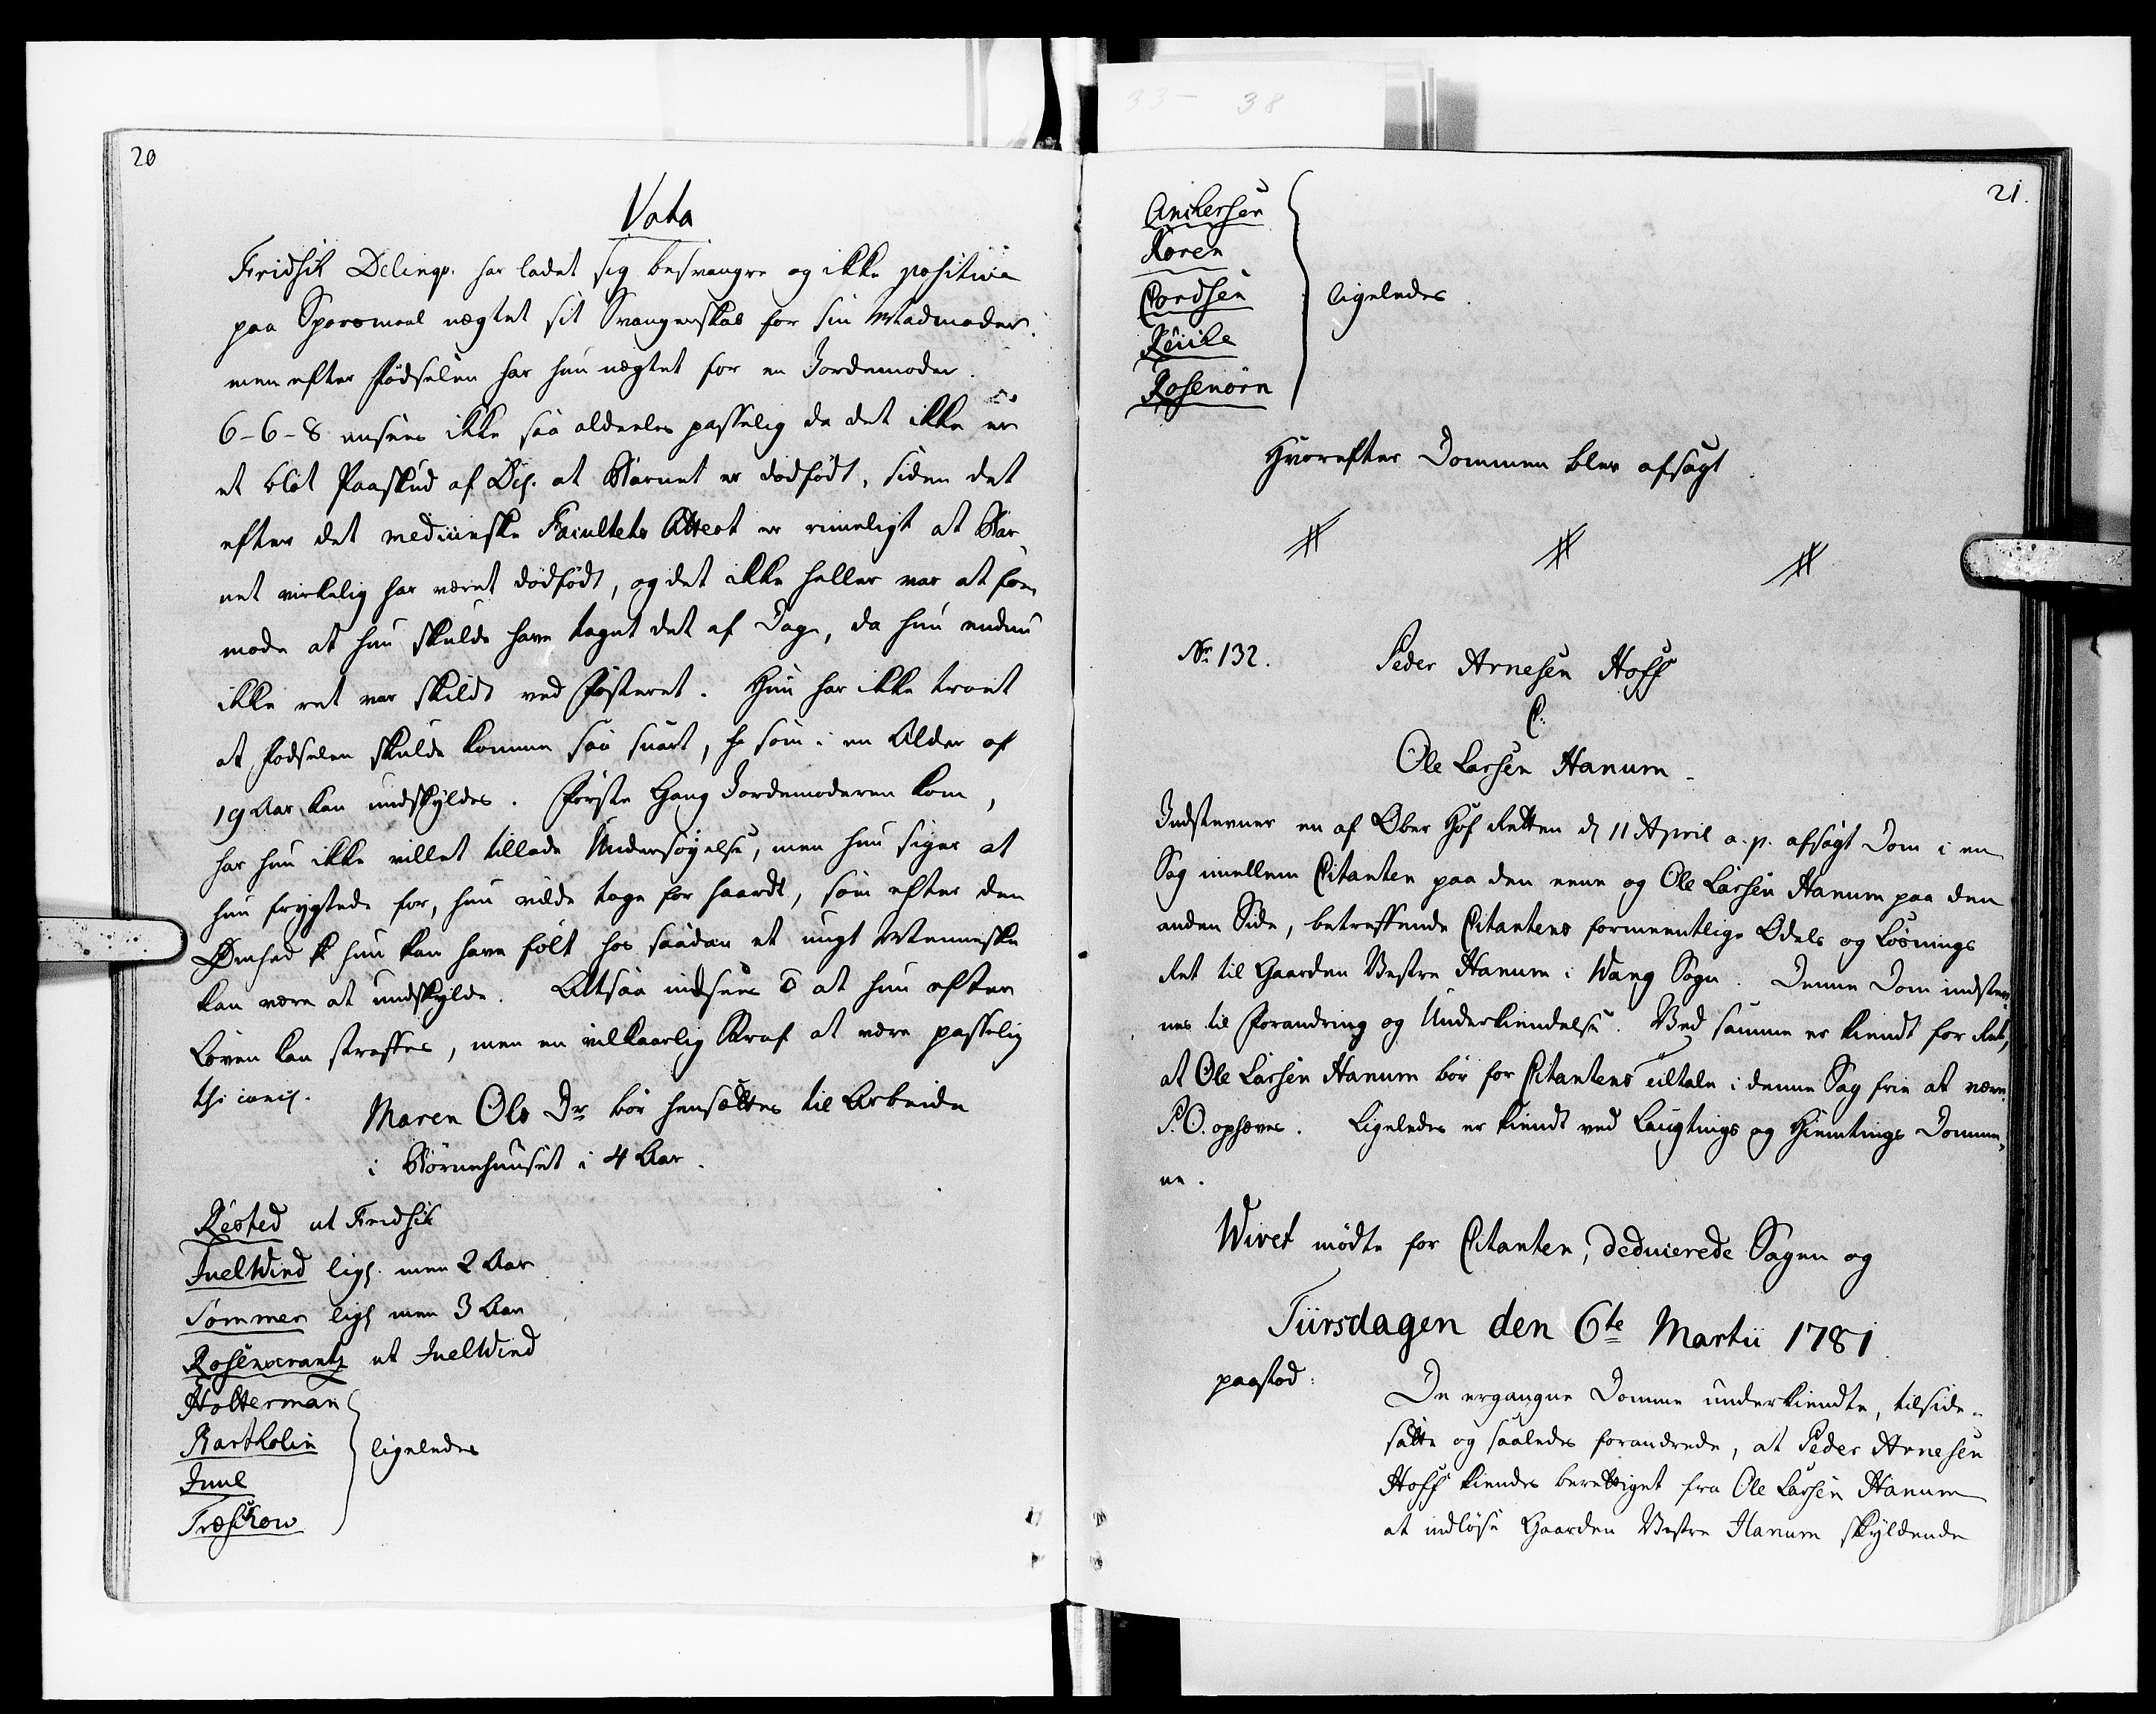 20
Vota
Fridsch Delinqv. har ladet sig besvangre og ikke positive
paa Spørsmaal nægtet sit Svangerskab for sin Madmoder.
men efter Fødselen har hun nægtet for en Jordemoder.
6-6-8 ansees ikke saa aldeeles passelig da det ikke er
et blot Paaskud af at Barnet er dødfødt, siden det
efter det medicinske Facultets Attest er rimeligt at Bar
net virkelig har været dødfødt, og det ikke heller var at for
mode at hun skulde have taget det af Dage, da hun endnu
ikke ret var skildt ved Fosteret. Hun har ikke troet
at Fødselen skulde komme saa snart, som i en Alder af
19 Aar kan undskyldes. Første Gang Jordemoderen kom,
har hun ikke villet tillade Undersøgelse, men hun siger at
hun frygtede for, hun vilde tage for haardt, som efter den
Ømhed hun kan have følt hos saadan et ungt Menneske
kan være at undskylde. Altsaa indsees at hun efter
Loven kan straffes, men en vilkaarlig Straf at være passelig
thi
Maren Ols Dr bør hensættes til Arbeide
i Børnehuuset i 4 Aar.
Rested ut Fridsch
Juel Wind lig. men 2 Aar
Sommer lig men 3 Aar
Rosencrantz ut Juel Wind
Holterman
Bartholin
ligeledes
Juul
Treschow
21.
Anchersen
Koren
Cordsen
ligeledes.
Reiche
Rosenörn
Hvorefter Dommen blev afsagt.
No. 132.
Peder Arnesen Hoff
C.
Ole Larsen Hanum
Indstevner en af Ober Hof Retten d 11 April a. p. afsagt Dom i en
Sag imellem Citanten paa den eene og Ole Larsen Hanum paa den
anden Side, betreffende Citantens formeentlige Odels og Løsnings
Ret til Gaarden Vestre Hanum i Wang Sogn. Denne Dom indstev
nes til Forandring og Underkiendelse. Ved samme er kiendt for Ret,
at Ole Larsen Hanum bør for Citantens tiltale i denne Sag frie at være.
P. O. ophæves. Ligeledes er kiendt ved Laugtings og Hiemtings Domme,
ne.
Wivet mødte for Citanten, deducerede Sagen og
Tiirsdagen den 6te Martii 1781
paastod:
De ergangne Domme underkiendte, tilside-
satte og saaledes forandrede, at Peder Arnesen
Hoff kiendes berettiget fra Ole Larsen Hanum
at indløse Gaarden Vestre Hanum skyldende